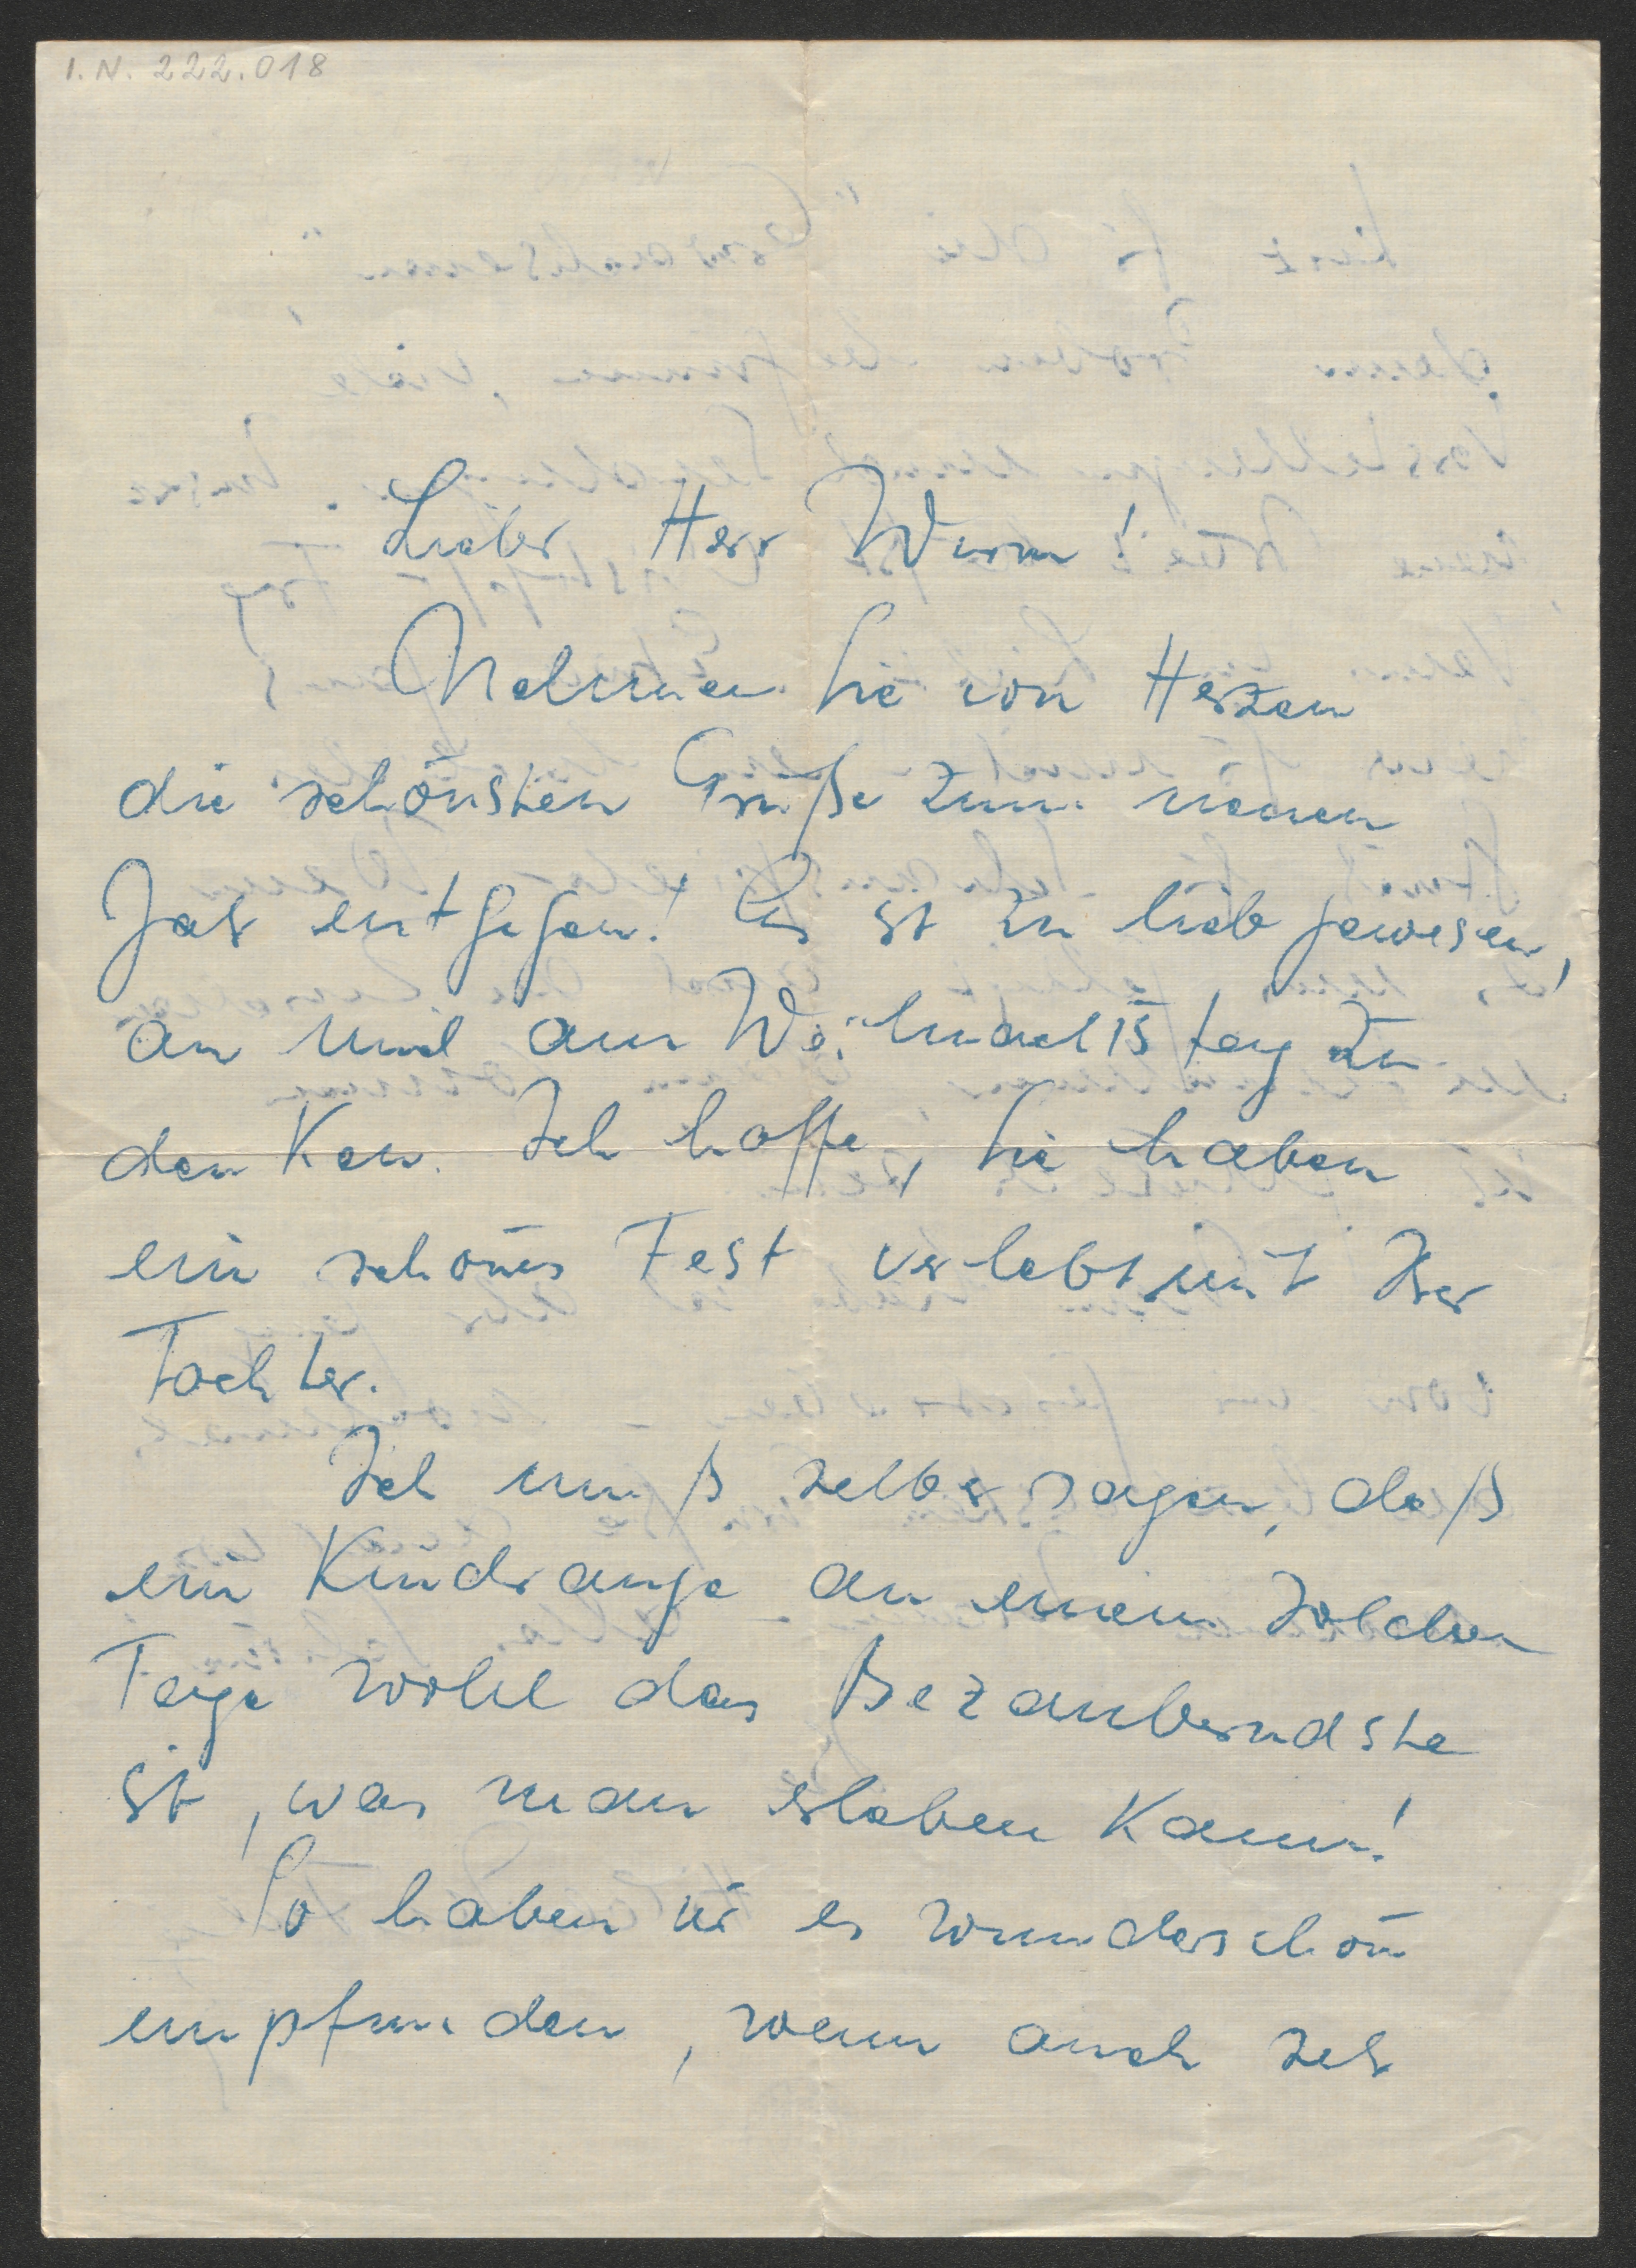 I.N. 222.018
Lieber Herr Wurm!
Nehmen Sie von Herzen
die schönsten Grüße zum neuen
Jahr entgegen! Es ist zu lieb gewesen,
an uns am Weihnachtstag zu
denken. Ich hoffe, Sie haben
ein schönes Fest verlebt mit Ihrer
Tochter.
Ich muß selber sagen, daß
ein Kinderauge an einem solchen
Tage wohl das Bezauberndste
ist, was man erleben kann!
So haben wir es wunderschön
empfunden, wenn auch sehr